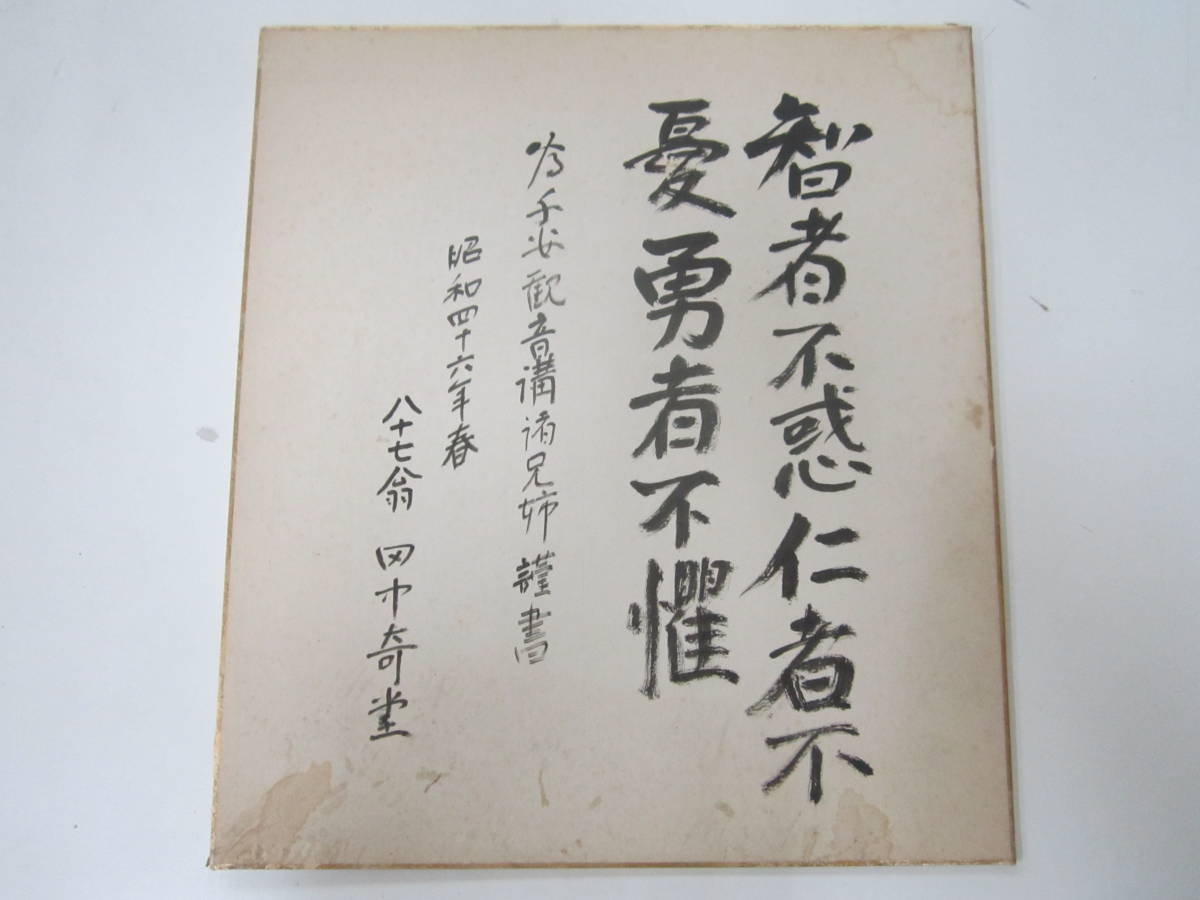 智者不惑仁者不
憂勇者不懼
為子安観音講諸兄姉 謹書
昭和四十六年春
八十七翁 田中奇堂